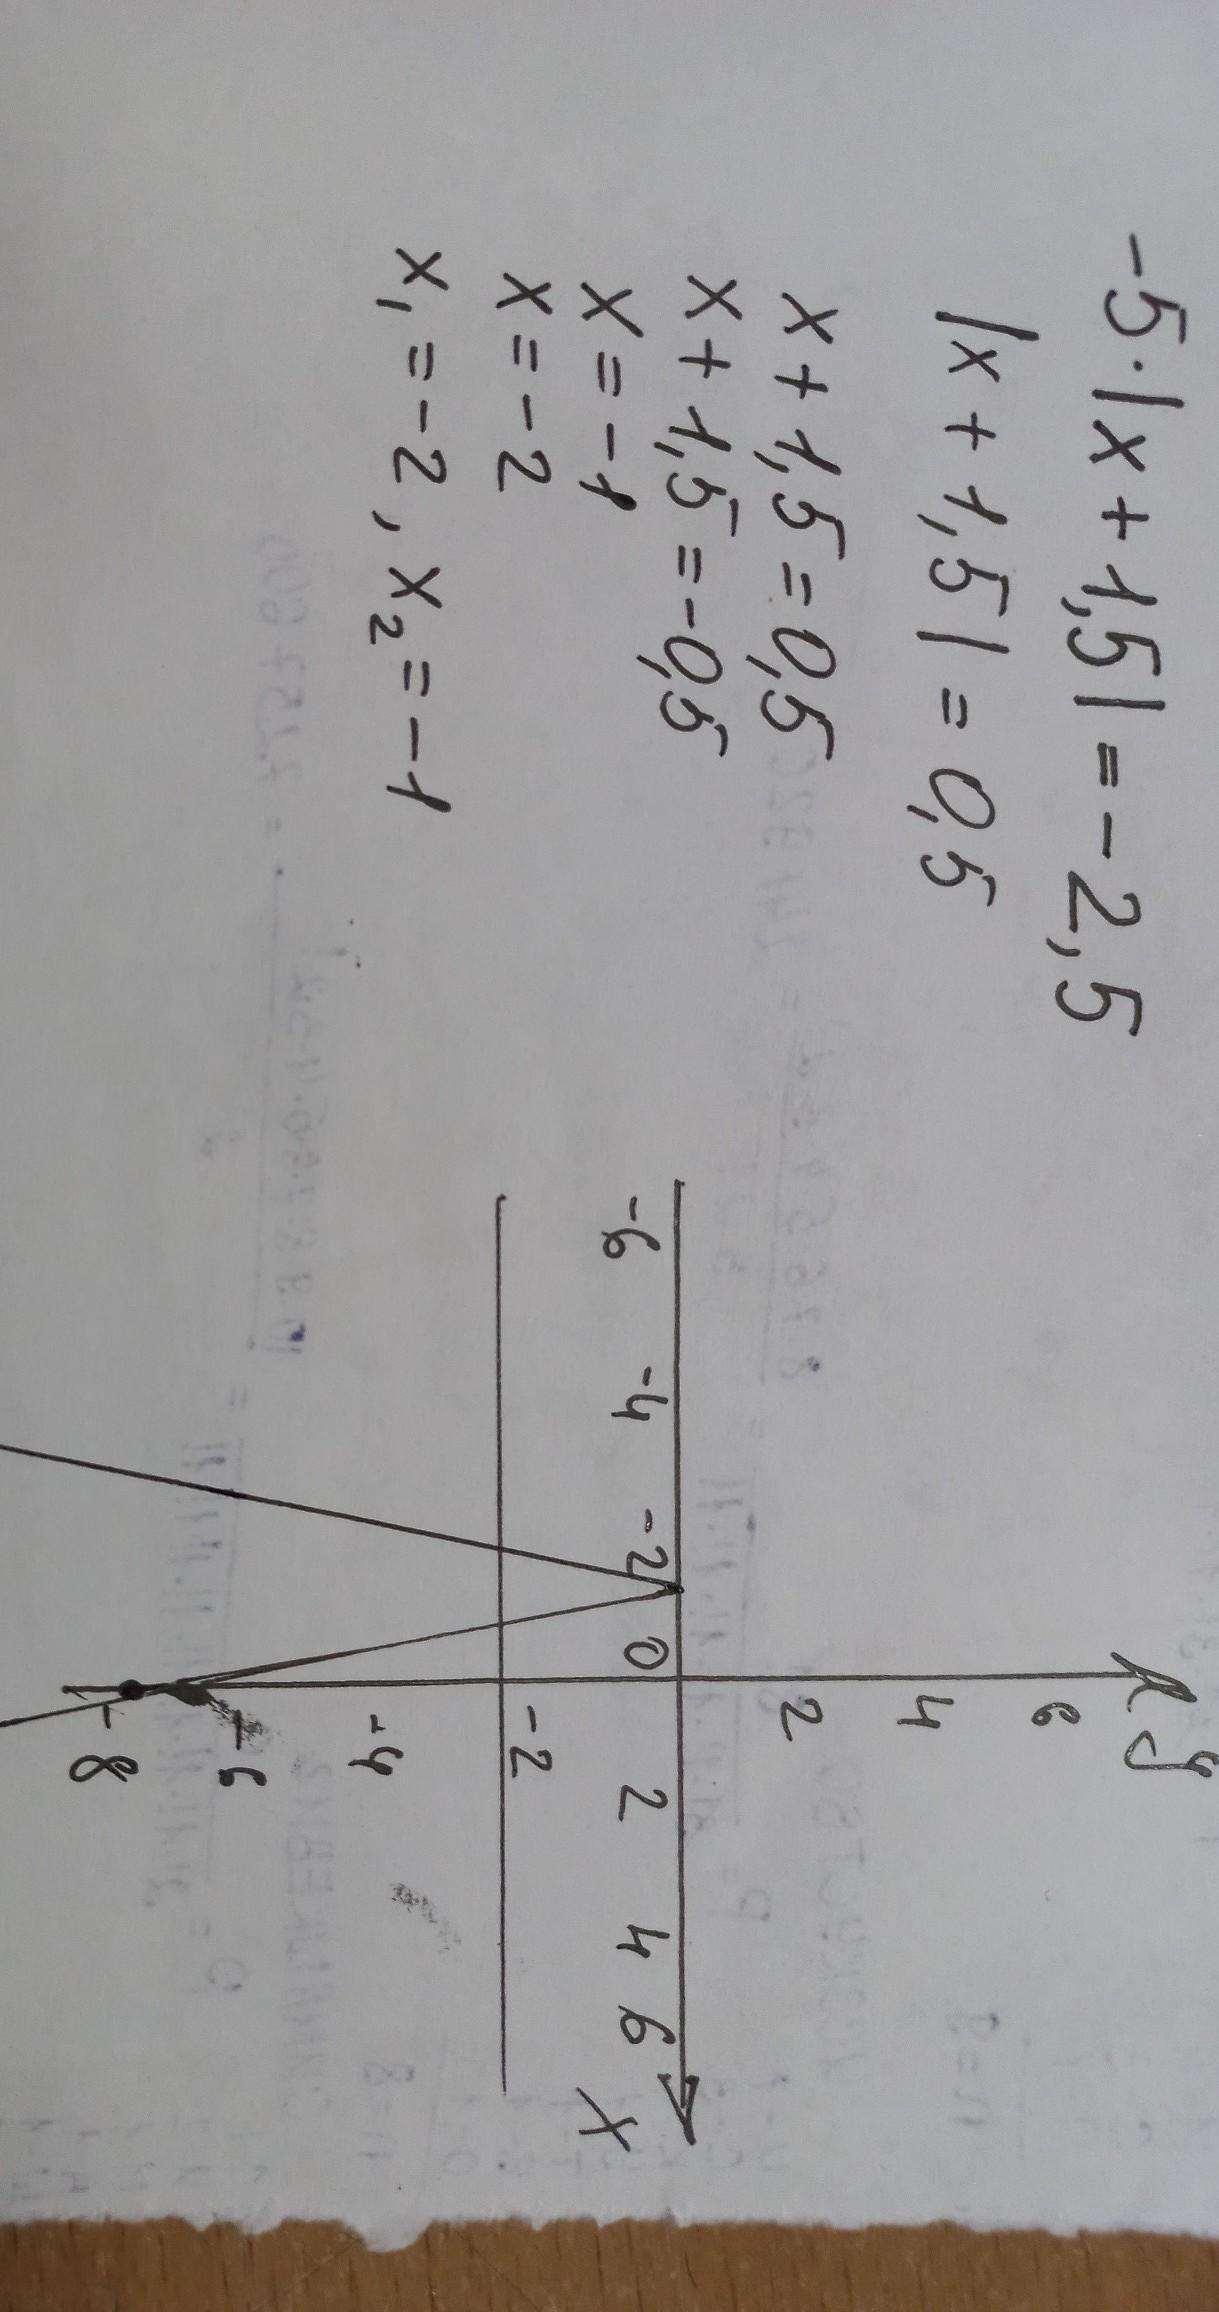 -5·|x+1,5|=-2,5
|x+1,5|=0,5
x+1,5=0,5
x+1,5=-0,5
x=-1
x=-2
x₁=-2, x₂=-1
y
6
4
2
-6 -4 -2 0 2 4 6
x
-2
-4
-6
-8